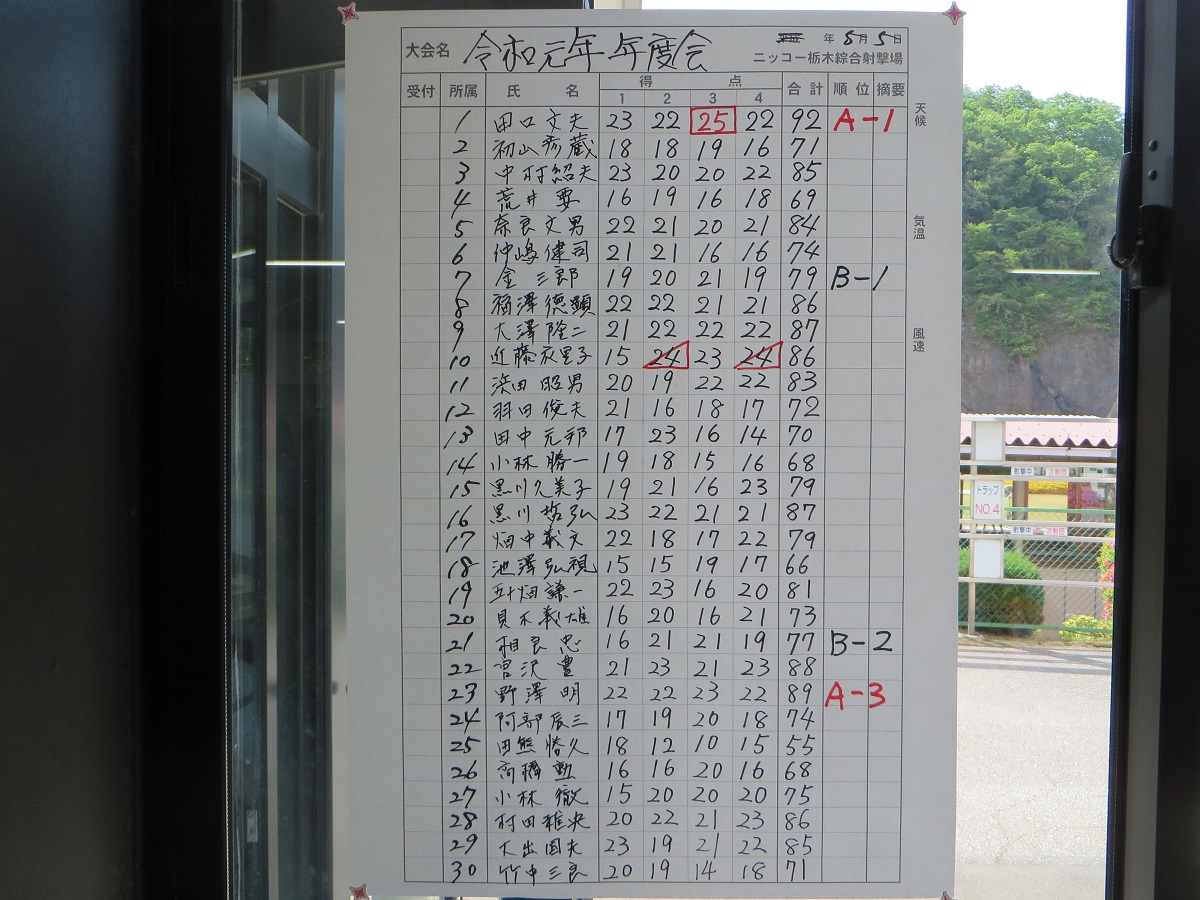 大会名 令和元年 年度会 年 5月5日
ニッコー栃木綜合射撃場
受付 所属 氏名 得点 合計 順位 摘要
1 2 3 4
1 田口文夫 23 22 25 22 92 A-1
2 初山彦蔵 18 18 19 16 71
3 中村紹夫 23 20 20 22 85
4 荒井要 16 19 16 18 69
5 奈良文男 22 21 20 21 84
6 仲嶋健司 21 21 16 16 74
7 金三郎 19 20 21 19 79 B-1
8 福澤德顕 22 22 21 21 86
9 大澤隆二 21 22 22 22 87
10 近藤衣里子 15 24 23 24 86
11 浜田昭男 20 19 22 22 83
12 羽田俊夫 21 16 18 17 72
13 田中元邦 17 23 16 14 70
14 小林勝一 19 18 15 16 68
15 黒川久美子 19 21 16 23 79
16 黒川哲弘 23 22 21 21 87
17 畑中義文 22 18 17 22 79
18 池澤弘視 15 15 19 17 66
19 五十畑謙一 22 23 16 20 81
20 貝木義雄 16 20 16 21 73
21 相良忠 16 21 21 19 77 B-2
22 宮沢豊 21 23 21 23 88
23 野澤明 22 22 23 22 89 A-3
24 阿部辰三 17 19 20 18 74
25 田熊勝久 18 12 10 15 55
26 高橋勲 16 16 20 16 68
27 小林徹 15 20 20 20 75
28 村田雅央 20 22 21 23 86
29 大出国夫 23 19 21 22 85
30 竹中三良 20 19 14 18 71
天候
気温
風速
トラップ
NO.4
射撃中
射撃中